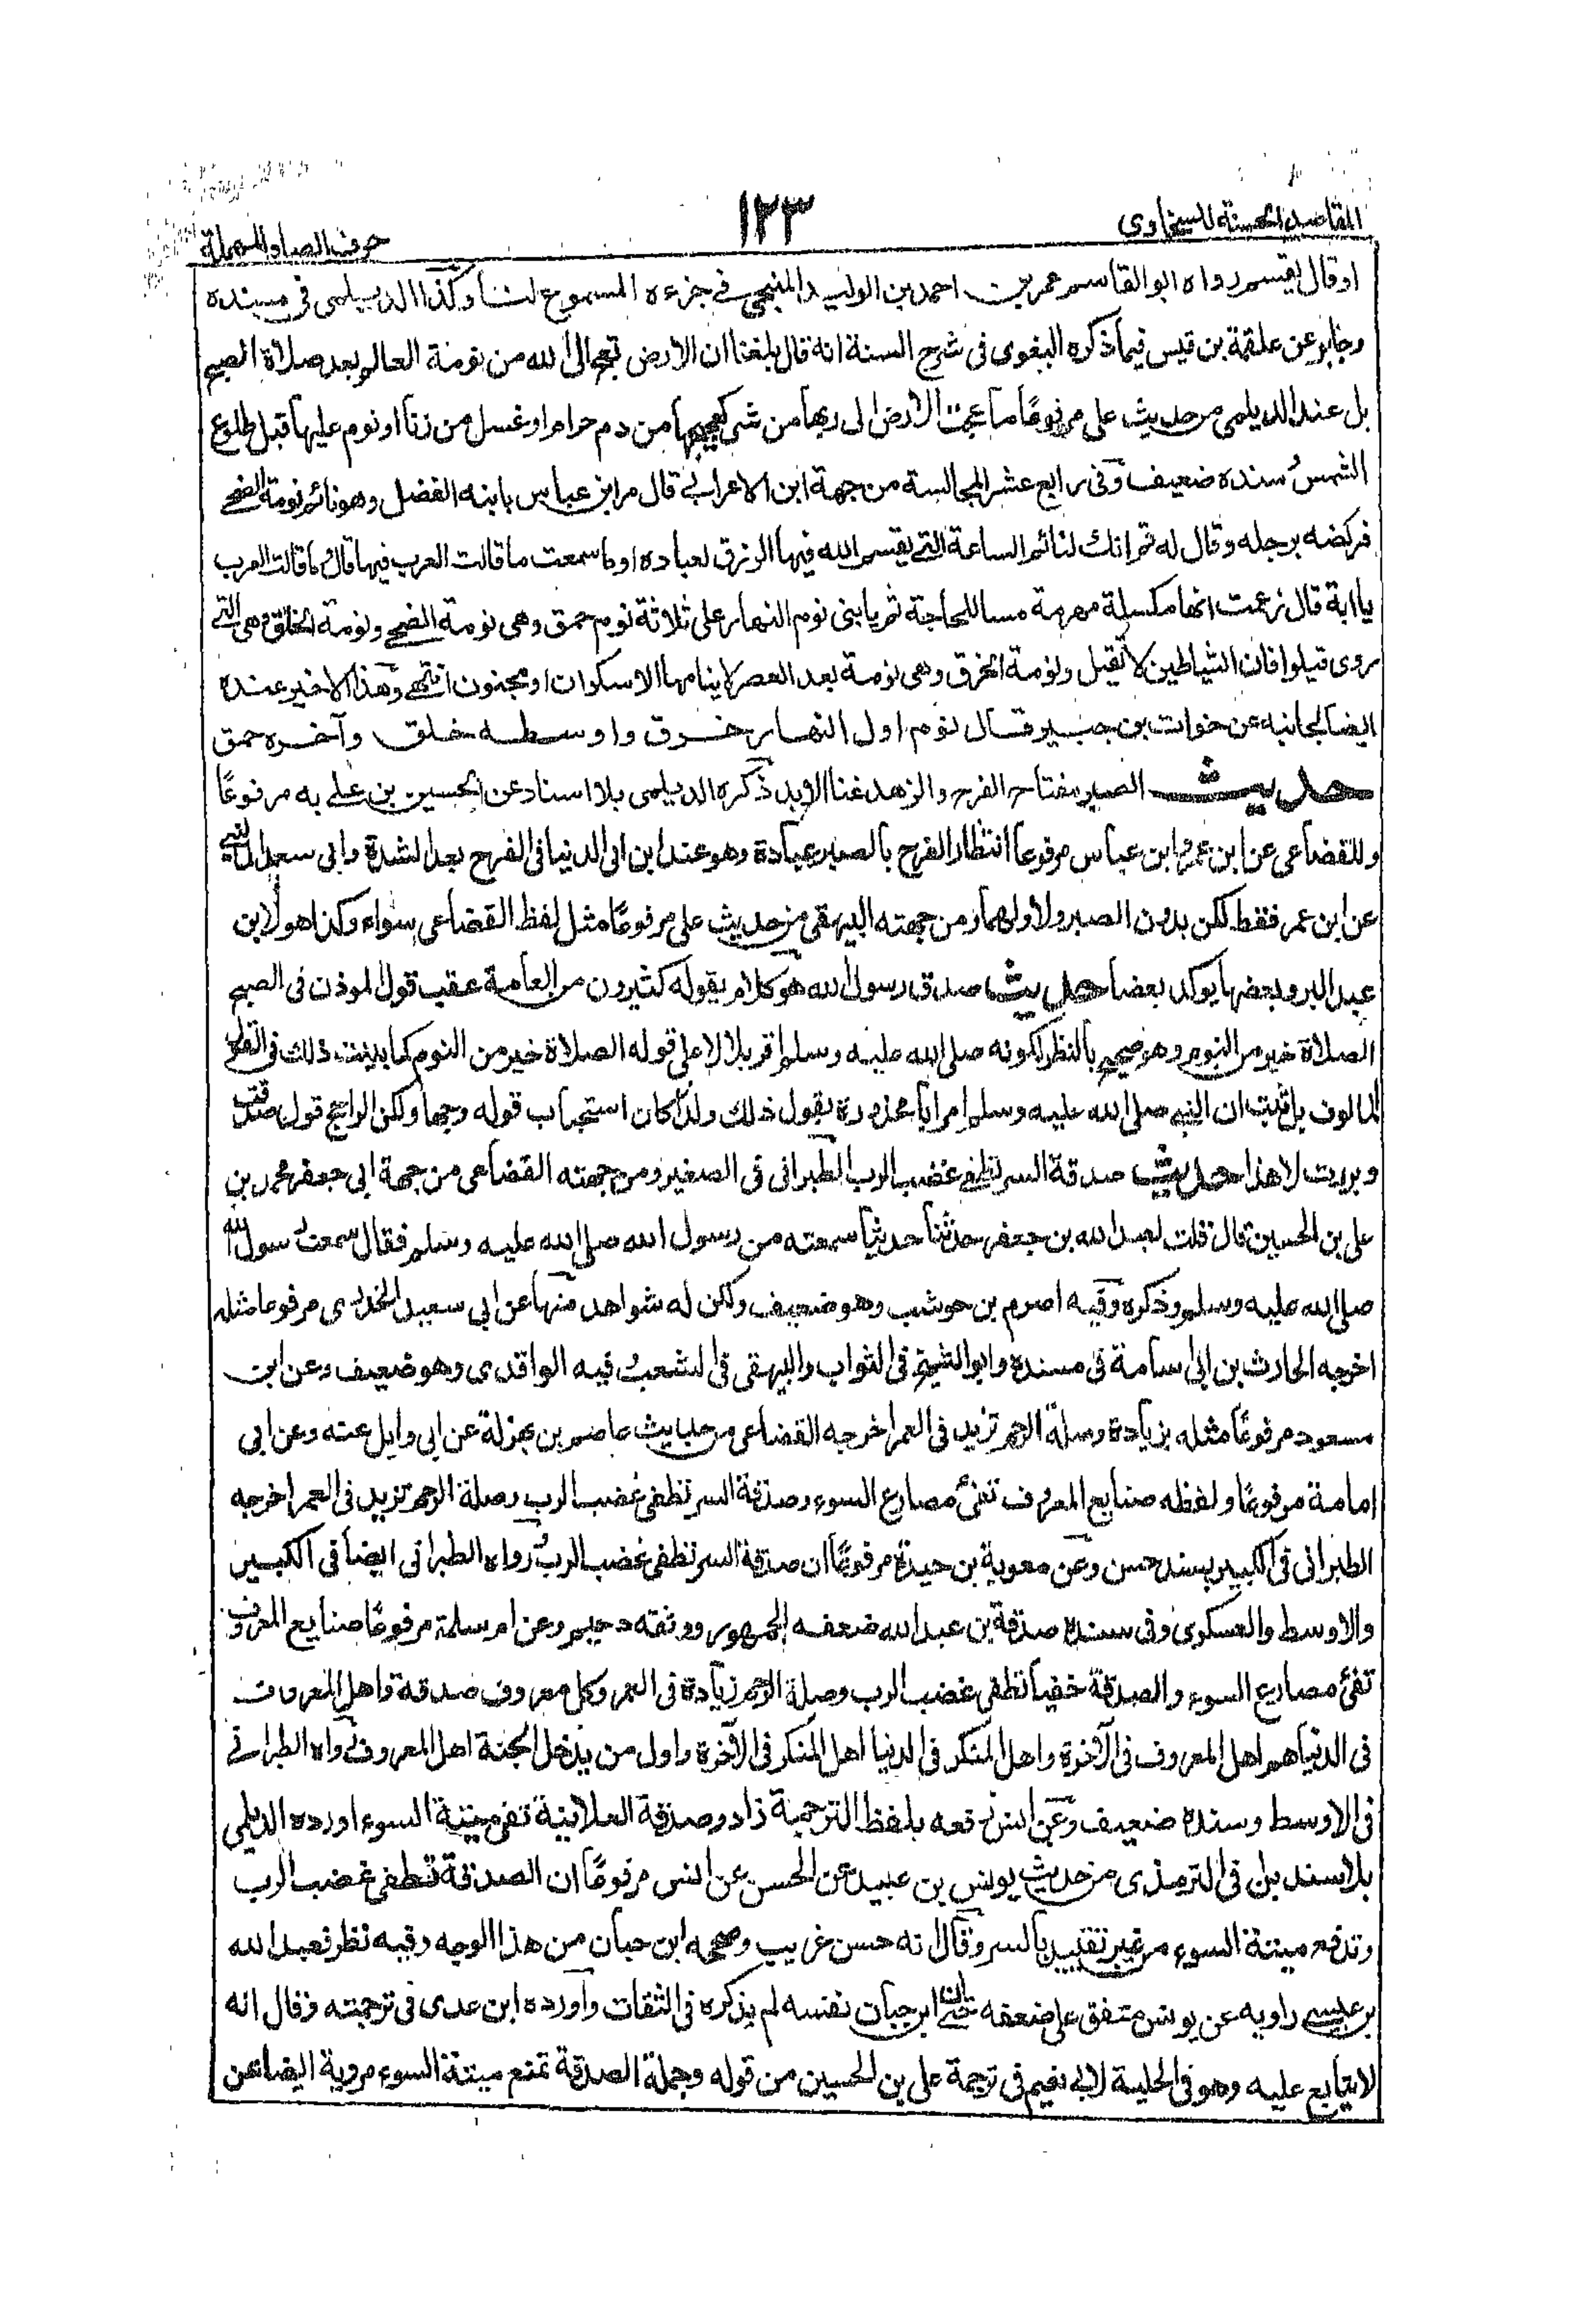 المقاصد الحسنة للسخاوى
١٢٣
حرف الصاد المهملة
او قال يقسم رواه ابو القاسم عمر بن احمد بن الوليد المنبجى فى جزءه المسموع لنا وكذا الديلمى فى مسنده
وجابر عن علقمة بن قيس فيما ذكره البغوى فى شرح السنة انه قال بلغنا ان الارض تعج الى الله من نومة العالم بعد صلاة الصبح
بل عند الديلمى من حديث على مرفوعًا ما عجت الارض الى ربها من شئ كعجيجها من دم حرام او غسل من زنا او نوم عليها قبل طلوع
الشمس سنده ضعيف وفى رابع عشر المجالسة من جهة ابن الاعرابى قال مر ابن عباس بابنه الفضل وهو نائم نومة الضحى
فركضه برجله وقال له قم انك لنائم الساعة التى يقسم الله فيها الرزق لعباده اوما سمعت ما قالت العرب فيها قال وما قالت العرب
يا ابة قال زعمت انها مكسلة مهرمة منساة للحاجة ثم يا بنى نوم النهار على ثلاثة نوم حمق وهى نومة الضحى ونومة الخلق وهى التى
روى قيلوا فان الشياطين لا تقيل ونومة الخرق وهى نومة بعد العصر لا ينامها الا سكران او مجنون انتهى وهذا الاخير عنده
ايضا لجانبه عن خوات بن جبير قال نوم اول النهار خرق واوسطه خلق وآخره حمق
حديث الصبر مفتاح الفرج والزهد غنا الابد ذكره الديلمى بلا اسناد عن الحسين بن على به مرفوعًا
وللقضاعى عن ابن عمر وابن عباس مرفوعا انتظار الفرج بالصبر عبادة وهو عند ابن ابى الدنيا فى الفرج بعد الشدة وابى سعد المالينى
عن ابن عمر فقط لكن بدون الصبر ولاولهما ومن جهته البيهقى من حديث على مرفوعًا مثل لفظ القضاعى سواء وكذا هو لابن
عبد البر وبعضها يوكد بعضا حديث صدق رسول الله هو كلام يقوله كثيرون من العامة عقب قول الموذن فى الصبح
الصلاة خير من النوم وهو صحيح بالنظر لكونه صلى الله عليه وسلم اقر بلالا على قوله الصلاة خير من النوم كما بينت ذلك فى القول
المالوف بل ثبت ان النبى صلى الله عليه وسلم امر ابا محذورة بقول ذلك ولذا كان استحباب قوله وجها ولكن الراجح قول صدقت
وبررت لا هذا حديث صدقة السر تطفئ غضب الرب الطبرانى فى الصغير ومن جهته القضاعى من جهة ابى جعفر محمد بن
على بن الحسين قال قلت لعبد الله بن جعفر حدثنا حديثا سمعته من رسول الله صلى الله عليه وسلم فقال سمعت رسول الله
صلى الله عليه وسلم وذكره وفيه اصرم بن حوشب وهو ضعيف ولكن له شواهد منها عن ابى سعيد الخدرى مرفوعا مثله
اخرجه الحارث بن ابى اسامة فى مسنده وابو الشيخ فى الثواب والبيهقى فى الشعب فيه الواقدى وهو ضعيف وعن ابن
مسعود مرفوعًا مثله بزيادة وصلة الرحم تزيد فى العمر اخرجه القضاعى من حديث عاصم بن بهدلة عن ابى وايل عنه وعن ابى
امامة مرفوعًا ولفظه صنايع المعروف تقئ مصارع السوء وصدقة السر تطفى غضب الرب وصلة الرحم تزيد فى العمر اخرجه
الطبرانى فى الكبير بسند حسن وعن معوية بن حيدة مرفوعًا ان صدقة السر تطفى غضب الرب رواه الطبرانى ايضا فى الكبير
والاوسط والعسكرى وفى سنده صدقة بن عبد الله ضعفه الجمهور ووثقه دحيم وعن ام سلمة مرفوعًا صنايع المعروف
تقئ مصارع السوء والصدقة خفيا تطفى غضب الرب وصلة الرحم زيادة فى العمر وكل معروف صدقة واهل المعروف
فى الدنيا هم اهل المعروف فى الآخرة واهل المنكر فى الدنيا اهل المنكر فى الآخرة واول من يدخل الجنة اهل المعروف رواه الطبرانى
فى الاوسط وسنده ضعيف وعن انس رفعه بلفظ الترجمة زاد وصدقة العلانية تقى ميتة السوء اورده الديلمى
بلا سند بل فى الترمذى من حديث يونس بن عبيد عن الحسن عن انس مرفوعًا ان الصدقة تطفى غضب الرب
وتدفع ميتة السوء من غير تقييد بالسر وقال انه حسن غريب وصححه ابن حبان من هذا الوجه وفيه نظر فعبد الله
بن عيسى راويه عن يونس متفق على ضعفه حتى ان ابن حبان نفسه لم يذكره فى الثقات واورده ابن عدى فى ترجمته وقال انه
لا يتابع عليه وهو فى الحلية لابى نعيم فى ترجمة على بن الحسين من قوله وجملة الصدقة تمنع ميتة السوء مروية ايضا عن